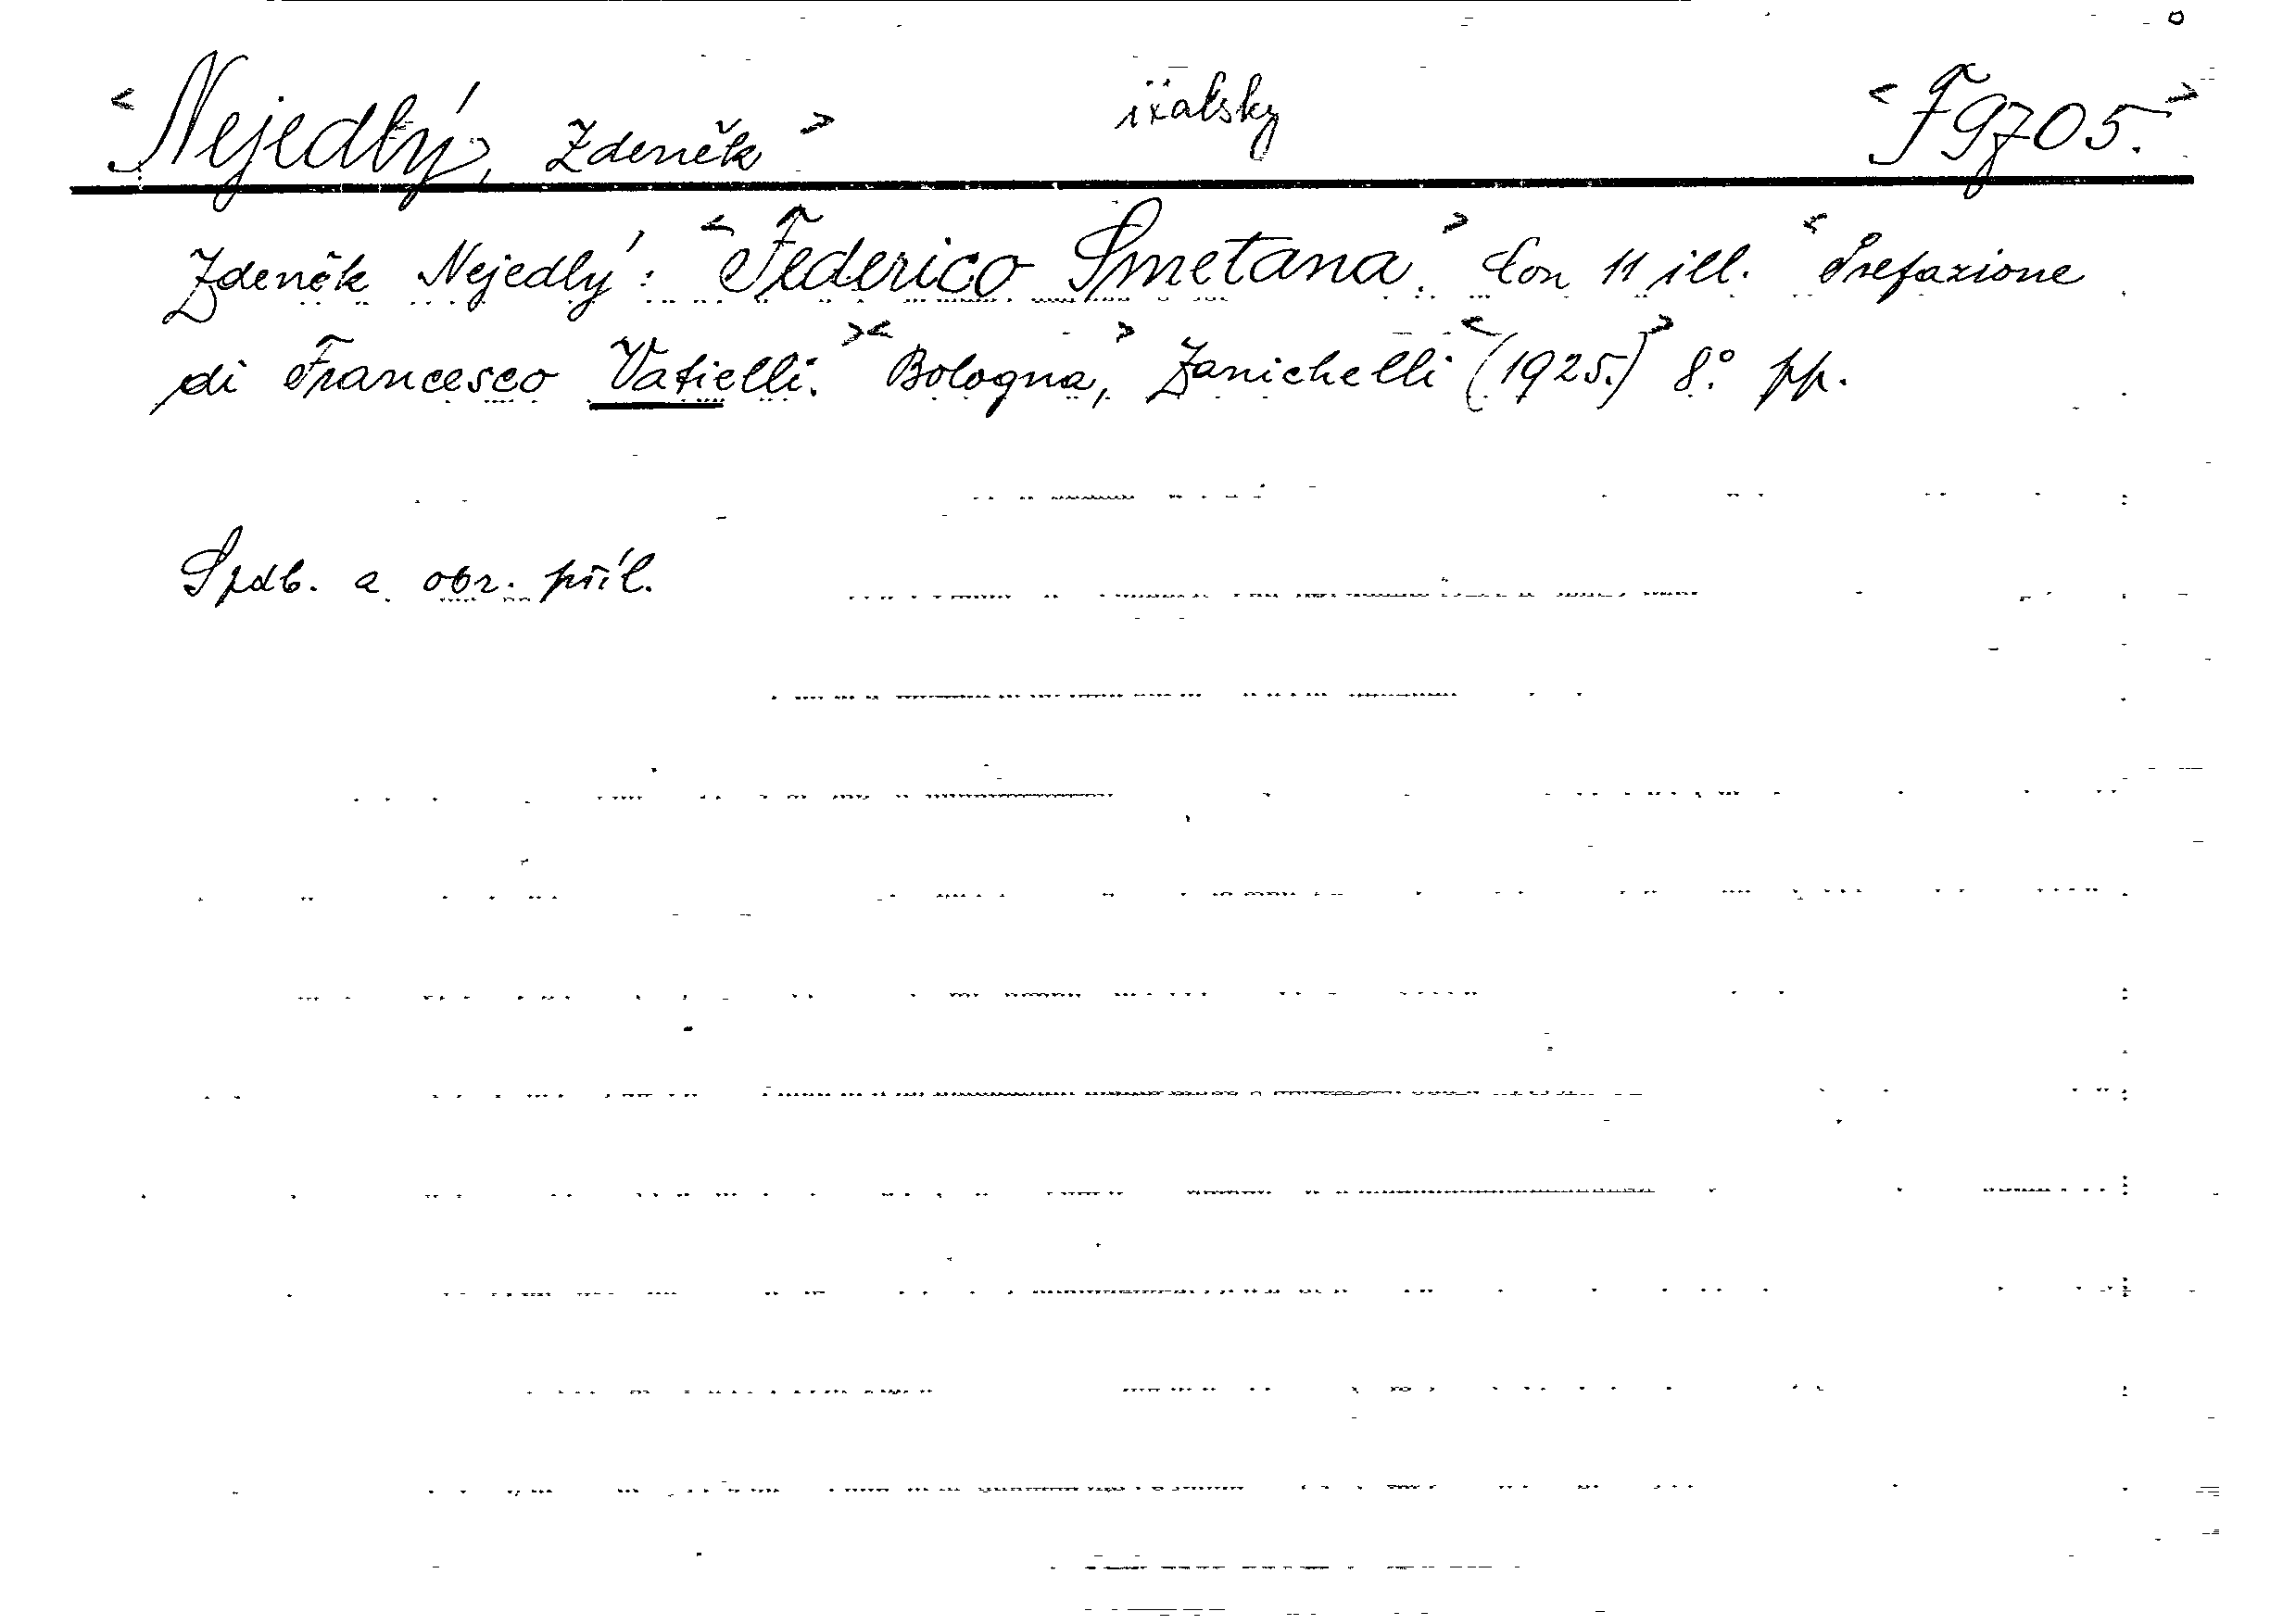 <Nejedlý, Zdeněk> italsky <F9705.>
Zdeněk Nejedlý: <Federico Smetana.> Con 11 ill. <Prefazione
di Francesco Vatielli.><Bologna,> Zanichelli <(1925.)> 8.° pp.
S pdb. a obr. příl.